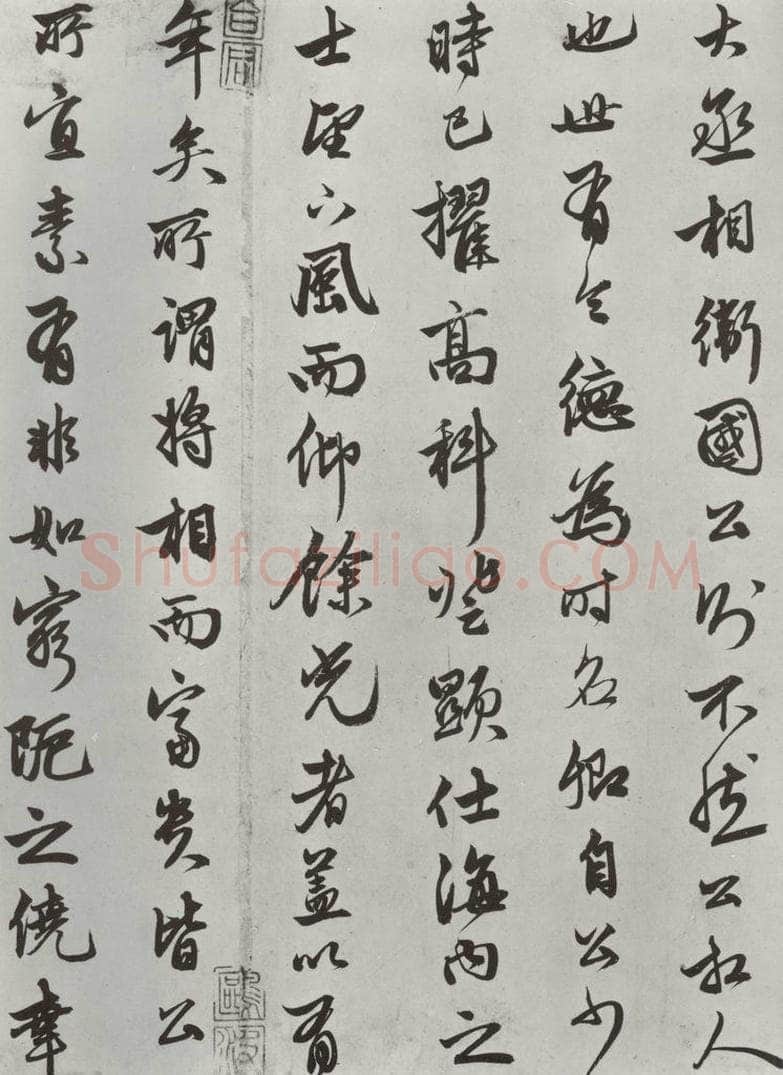 大丞相衛國公則不然公相人
也世有令德為時名卿自公少
時已擢高科登顯仕海內之
士望下風而仰餘光者盖以有
年矣所謂將相而富貴皆公
所宜素有非如窮阨之僥幸
Shufaziliao.COM